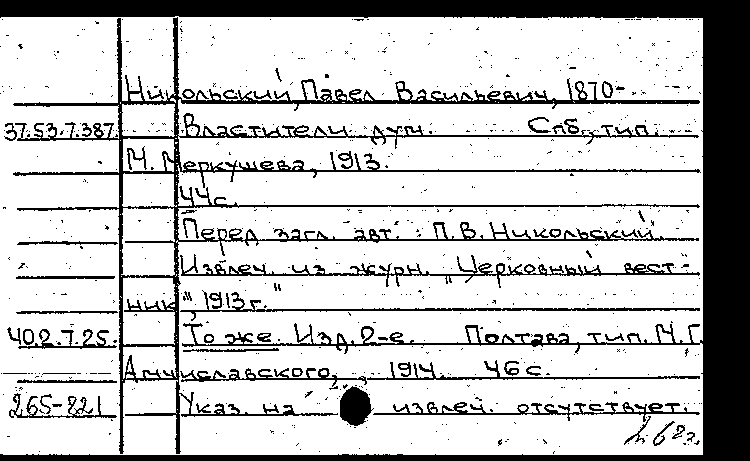 Никольский, Павел Васильевич, 1870-
37.53.7.387 Властители дум. Спб., тип.
М. Меркушева, 1913.
44с.
Перед загл. авт.: П.В. Никольский.
Извлеч. из журн. „Церковный вест-
ник", 1913 г."
40.2.7.25. То же. Изд. 2-е. Полтава, тип. М.Г.
1914. 46 с.
265-821 Указ. на извлеч. отсутствует.